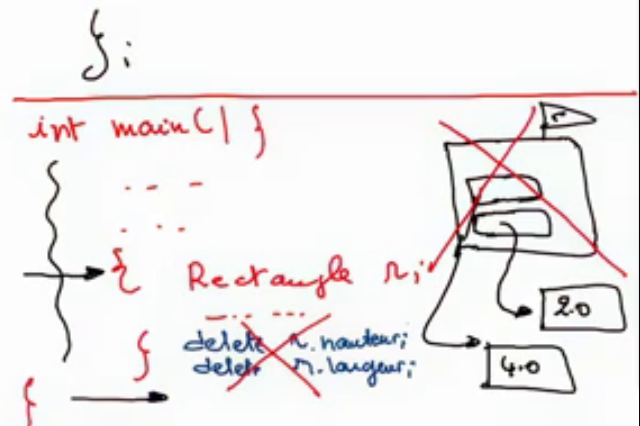 };
int main() {
r
... 
...
{ Rectangle r;
... ...
2.0
} delete r.hauteur;
delete r.largeur;
4.0
}